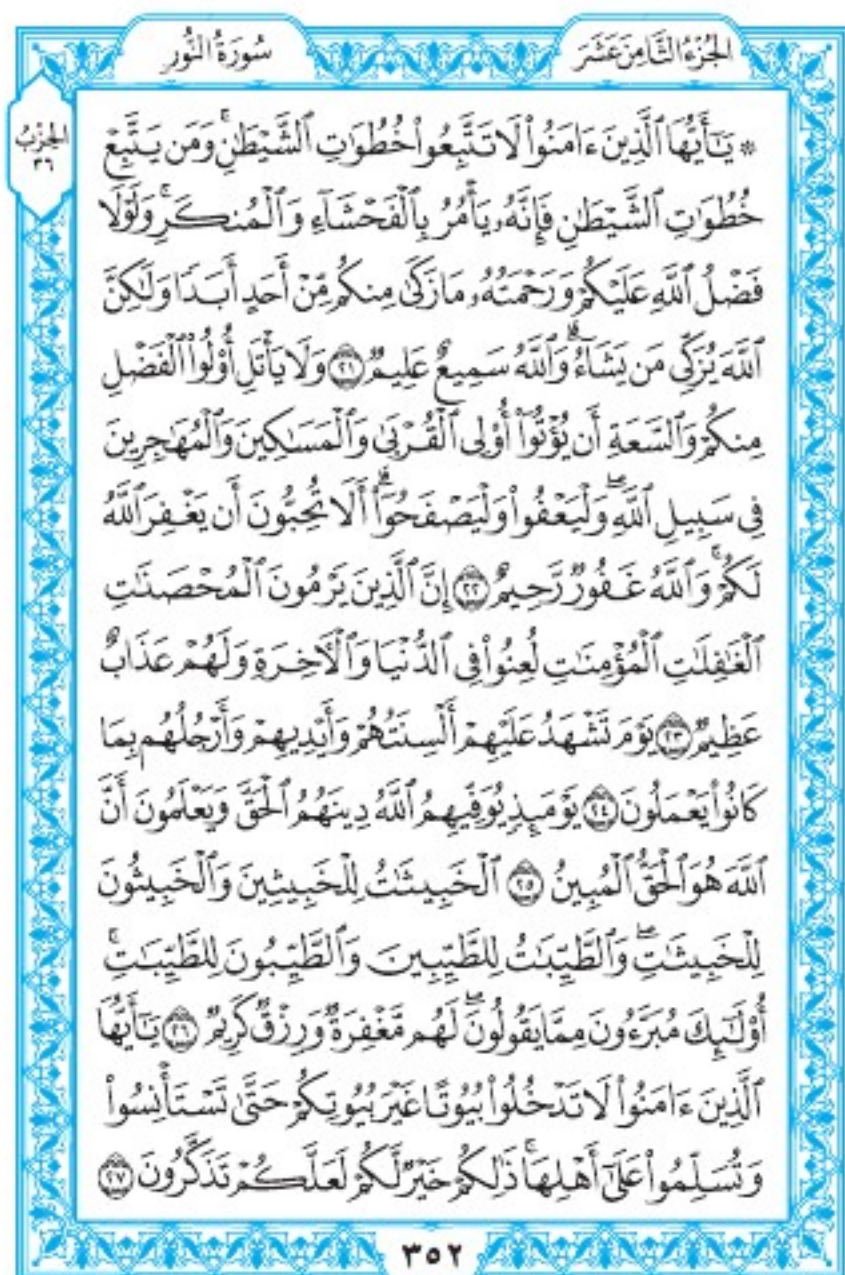 الجُزْءُ الثَّامِنَ عَشَرَ
سُورَةُ النُّورِ
الحِزْبُ
٣٦
۞ يَٰٓأَيُّهَا ٱلَّذِينَ ءَامَنُواْ لَا تَتَّبِعُواْ خُطُوَٰتِ ٱلشَّيْطَٰنِۚ وَمَن يَتَّبِعْ
خُطُوَٰتِ ٱلشَّيْطَٰنِ فَإِنَّهُۥ يَأْمُرُ بِٱلْفَحْشَآءِ وَٱلْمُنكَرِۚ وَلَوْلَا
فَضْلُ ٱللَّهِ عَلَيْكُمْ وَرَحْمَتُهُۥ مَا زَكَىٰ مِنكُم مِّنْ أَحَدٍ أَبَدًا وَلَٰكِنَّ
ٱللَّهَ يُزَكِّي مَن يَشَآءُۗ وَٱللَّهُ سَمِيعٌ عَلِيمٌ ٢١ وَلَا يَأْتَلِ أُوْلُواْ ٱلْفَضْلِ
مِنكُمْ وَٱلسَّعَةِ أَن يُؤْتُوٓاْ أُوْلِي ٱلْقُرْبَىٰ وَٱلْمَسَٰكِينَ وَٱلْمُهَٰجِرِينَ
فِي سَبِيلِ ٱللَّهِۖ وَلْيَعْفُواْ وَلْيَصْفَحُوٓاْۗ أَلَا تُحِبُّونَ أَن يَغْفِرَ ٱللَّهُ
لَكُمْۚ وَٱللَّهُ غَفُورٌ رَّحِيمٌ ٢٢ إِنَّ ٱلَّذِينَ يَرْمُونَ ٱلْمُحْصَنَٰتِ
ٱلْغَٰفِلَٰتِ ٱلْمُؤْمِنَٰتِ لُعِنُواْ فِي ٱلدُّنْيَا وَٱلْأٓخِرَةِ وَلَهُمْ عَذَابٌ
عَظِيمٌ ٢٣ يَوْمَ تَشْهَدُ عَلَيْهِمْ أَلْسِنَتُهُمْ وَأَيْدِيهِمْ وَأَرْجُلُهُم بِمَا
كَانُواْ يَعْمَلُونَ ٢٤ يَوْمَئِذٍ يُوَفِّيهِمُ ٱللَّهُ دِينَهُمُ ٱلْحَقَّ وَيَعْلَمُونَ أَنَّ
ٱللَّهَ هُوَ ٱلْحَقُّ ٱلْمُبِينُ ٢٥ ٱلْخَبِيثَٰتُ لِلْخَبِيثِينَ وَٱلْخَبِيثُونَ
لِلْخَبِيثَٰتِۖ وَٱلطَّيِّبَٰتُ لِلطَّيِّبِينَ وَٱلطَّيِّبُونَ لِلطَّيِّبَٰتِۚ
أُوْلَٰٓئِكَ مُبَرَّءُونَ مِمَّا يَقُولُونَۖ لَهُم مَّغْفِرَةٌ وَرِزْقٌ كَرِيمٌ ٢٦ يَٰٓأَيُّهَا
ٱلَّذِينَ ءَامَنُواْ لَا تَدْخُلُواْ بُيُوتًا غَيْرَ بُيُوتِكُمْ حَتَّىٰ تَسْتَأْنِسُواْ
وَتُسَلِّمُواْ عَلَىٰٓ أَهْلِهَاۚ ذَٰلِكُمْ خَيْرٌ لَّكُمْ لَعَلَّكُمْ تَذَكَّرُونَ ٢٧
٣٥٢